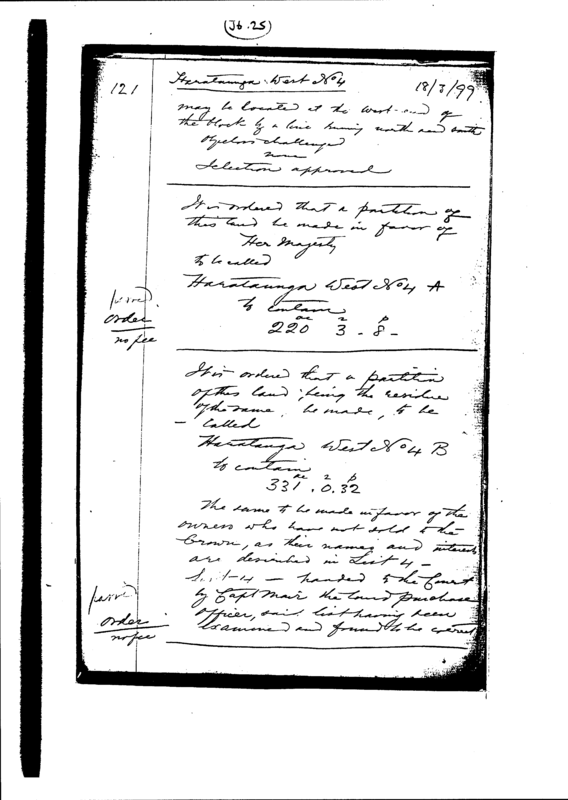 (J6.25)
121
Harataunga West No 4
18/3/99
may be located at the west end of
the block by a line running north and south
Objectors challenged
none
Selection approved
It is ordered that a partition of
this land be made in favor of
Her Majesty
to be called
Harataunga West No 4 A
to contain
ac r p
220 3 - 8 -
order
no fee
It is ordered that a partition
of this land being the residue
of the same, be made, to be
- called
Harataunga West No 4 B
to contain
ac r p
331 . 0 . 32
The same to be made in favor of the
owners who have not sold to the
Crown, as their names and interests
are described in List 4 -
List 4 - handed to the Court
by Capt Mair the land purchase
Officer, said list having been
examined and found to be correct
order
no fee